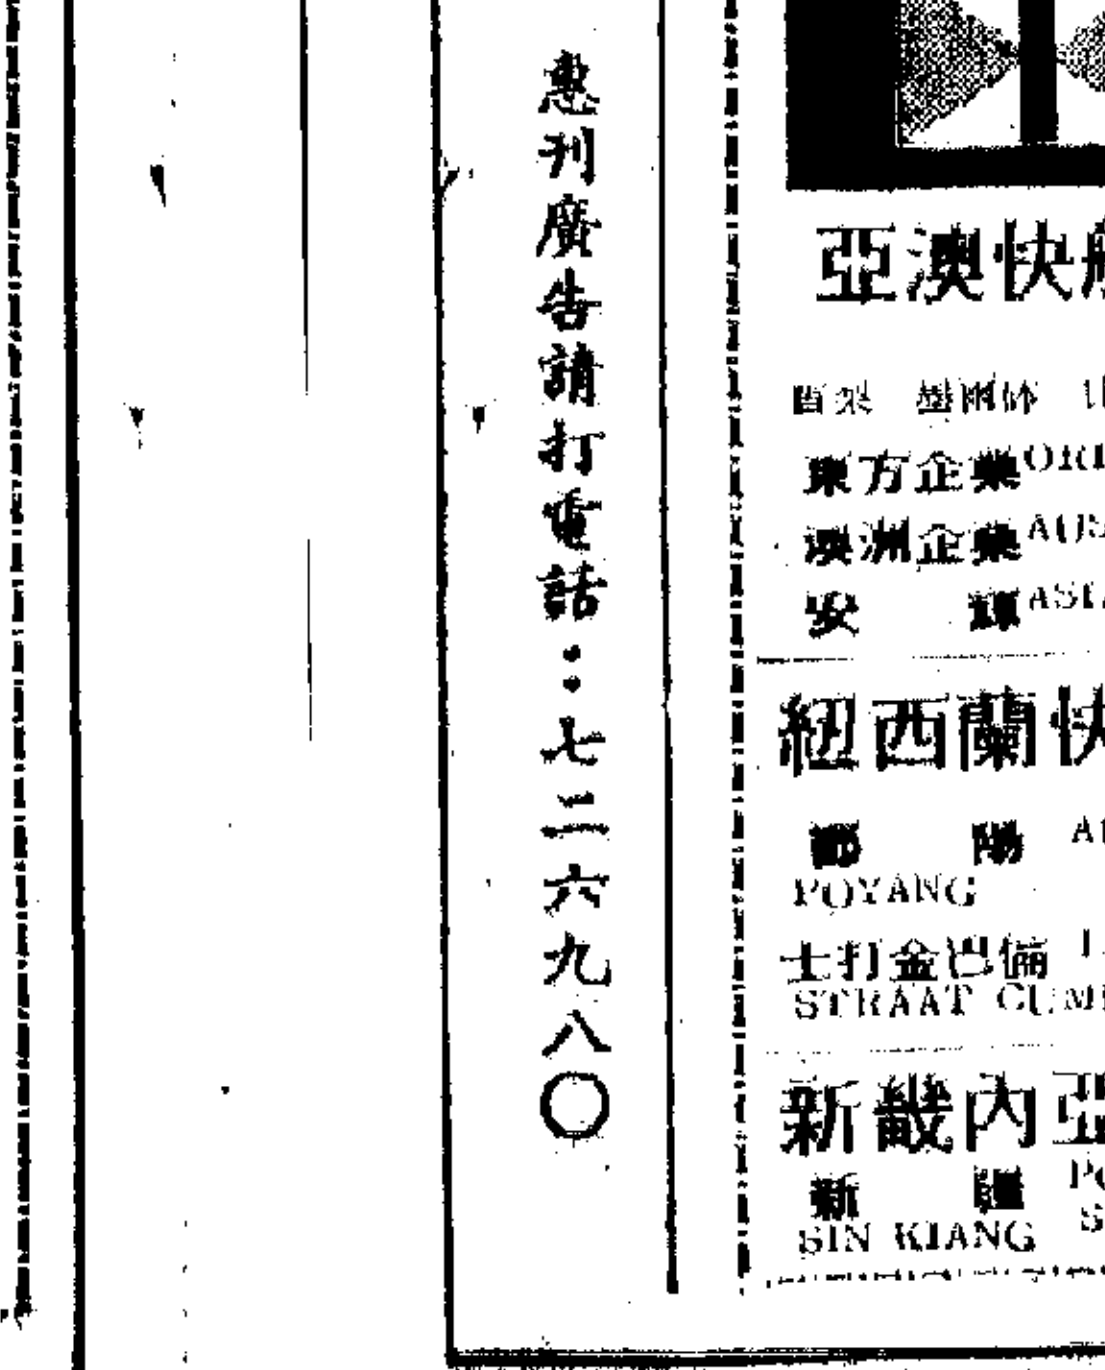 惠刊廣告請打電話：七二六九八〇
亞澳快
東方企業 ORI
澳洲企業 AUS
安輝 ASIA
紐西蘭快
鄱陽
POYANG
士打金巴倫
STRAAT CUM
新畿內亞
新疆
SIN KIANG